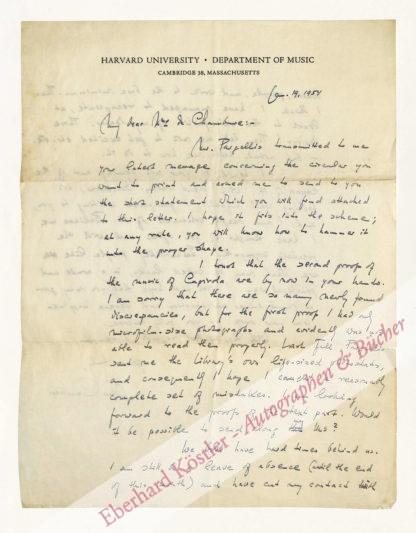 HARVARD UNIVERSITY • DEPARTMENT OF MUSIC
CAMBRIDGE 38, MASSACHUSETTS
Jan. 19, 1954
My dear Mr. de Chambure:—
Mr. Pargellis transmitted to me
your latest message concerning the circular you
want to print and asked me to send to you
the short statement which you will find attached
to this letter. I hope it fits into the scheme;
at any rate, you will know how to hammer it
into the proper shape.
I trust that the second proofs of
the music of Capirola are by now in your hands.
I am sorry that there are so many newly found
discrepancies, but for the first proof I had only
microfilm-size photographs and evidently was not
able to read them properly. Last
sent me the Library's own life-sized photostats,
and consequently I hope I caught a reasonably
complete set of mistakes. I am looking
forward to the proofs of the text part. Would
it be possible to send along the Ms?
We have hard times behind us.
I am still on leave of absence (until the end
of this month) and have cut my contact with
Eberhard Köstler - Autographen & Bücher